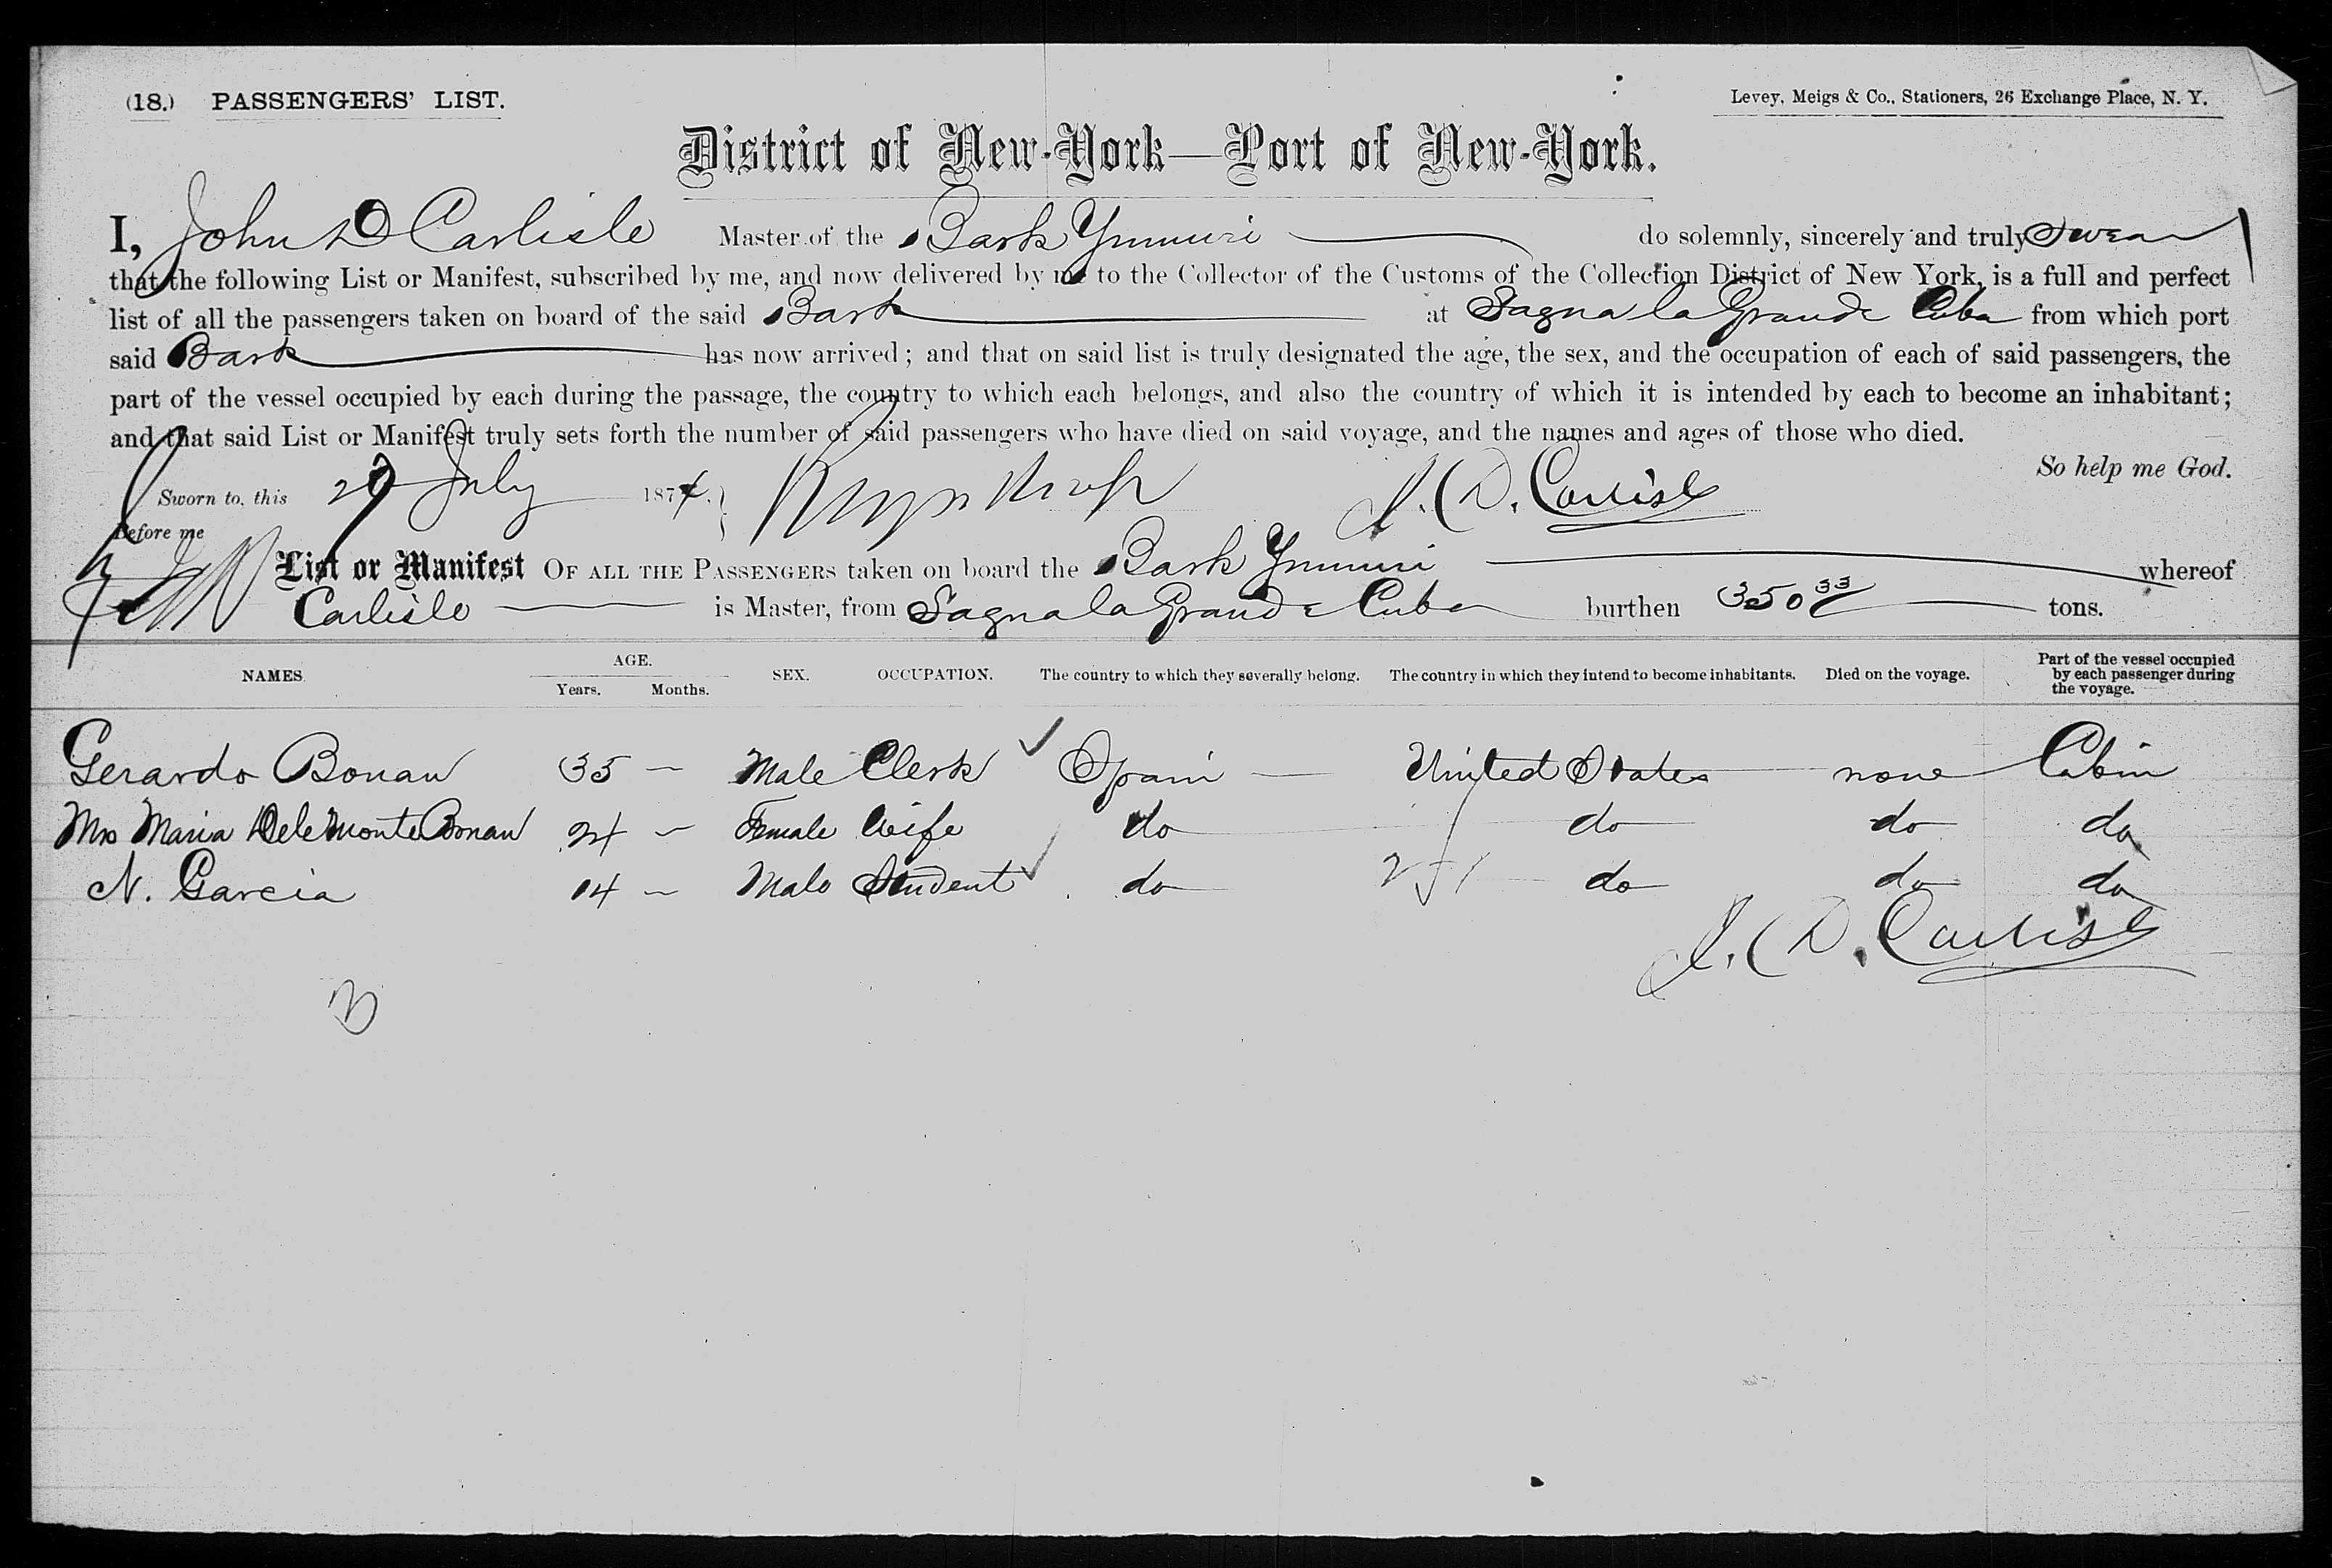 (18.) PASSENGERS' LIST.
Levey, Meigs & Co., Stationers, 26 Exchange Place, N. Y.
District of New-York—Port of New-York.
I, John D Carlisle Master of the Bark Yumuri do solemnly, sincerely and truly Swear
that the following List or Manifest, subscribed by me, and now delivered by me to the Collector of the Customs of the Collection District of New York, is a full and perfect
list of all the passengers taken on board of the said Bark at Sagua la Grande Cuba from which port
said Bark has now arrived; and that on said list is truly designated the age, the sex, and the occupation of each of said passengers, the
part of the vessel occupied by each during the passage, the country to which each belongs, and also the country of which it is intended by each to become an inhabitant;
and that said List or Manifest truly sets forth the number of said passengers who have died on said voyage, and the names and ages of those who died.
So help me God.
Sworn to, this 29 July 1874. J. D. Carlisle
Before me
List or Manifest OF ALL THE PASSENGERS taken on board the Bark Yumuri whereof
Carlisle is Master, from Sagua la Grande Cuba burthen 350 33 tons.
NAMES. AGE. Years. Months. SEX. OCCUPATION. The country to which they severally belong. The country in which they intend to become inhabitants. Died on the voyage. Part of the vessel occupied by each passenger during the voyage.
Gerardo Bonan 35 — Male Clerk Spain United States none Cabin
Mrs Maria Dele Monte Bonan 24 — Female Wife do do do do
N. Garcia 14 — Male Student do do do do
J. D. Carlisle